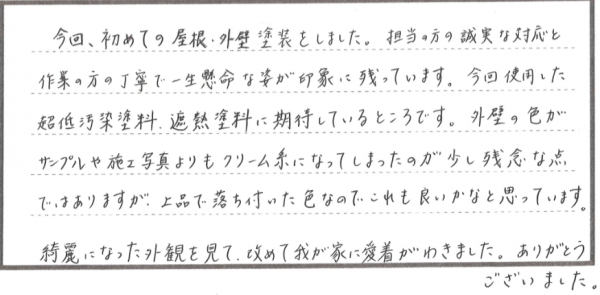 今回、初めての屋根・外壁塗装をしました。担当の方の誠実な対応と
作業の方の丁寧で一生懸命な姿が印象に残っています。今回使用した
超低汚染塗料、遮熱塗料に期待しているところです。外壁の色が
サンプルや施工写真よりもクリーム系になってしまったのが少し残念な点
ではありますが、上品で落ち付いた色なのでこれも良いかなと思っています。
綺麗になった外観を見て、改めて我が家に愛着がわきました。ありがとう
ございました。